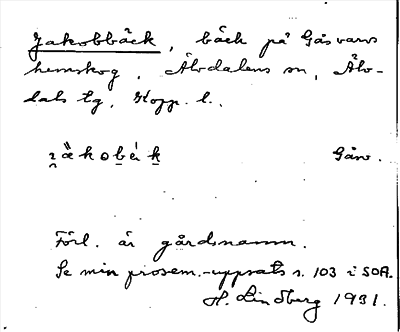 Jakobbäck, bäck på Gåsvarvs
hemskog, Älvdalens sn, Älv-
dals tg, Kopp. l.
Gåsv.
Förl. är gårdsnamn.
Se min prosem.-uppsats s. 103 i SOA.
H. Lindberg 1931.